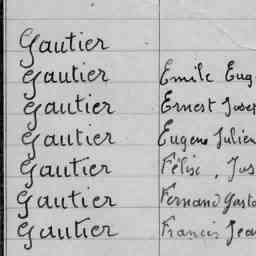 Gautier
Gautier Emile Eug
Gautier Ernest Josep
Gautier Eugene Julien
Gautier Félix, Jos
Gautier Fernand Gasto
Gautier Francis Jea